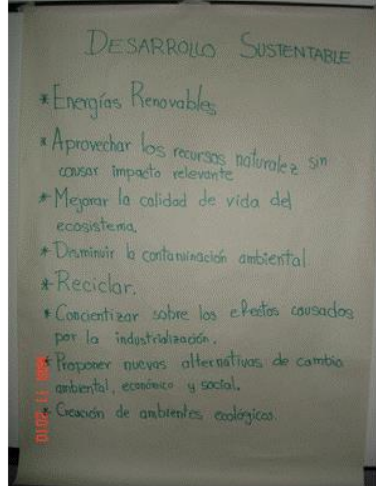 DESARROLLO SUSTENTABLE
* Energías Renovables
* Aprovechar los recursos naturalez sin
causar impacto relevante
* Mejorar la calidad de vida del
ecosistema.
* Disminuir la contaminación ambiental
* Reciclar.
* Concientizar sobre los efectos causados
por la industrialización.
* Proponer nuevas alternativas de cambio
ambiental, económico y social.
* Creación de ambientes ecológicos.
11 2010